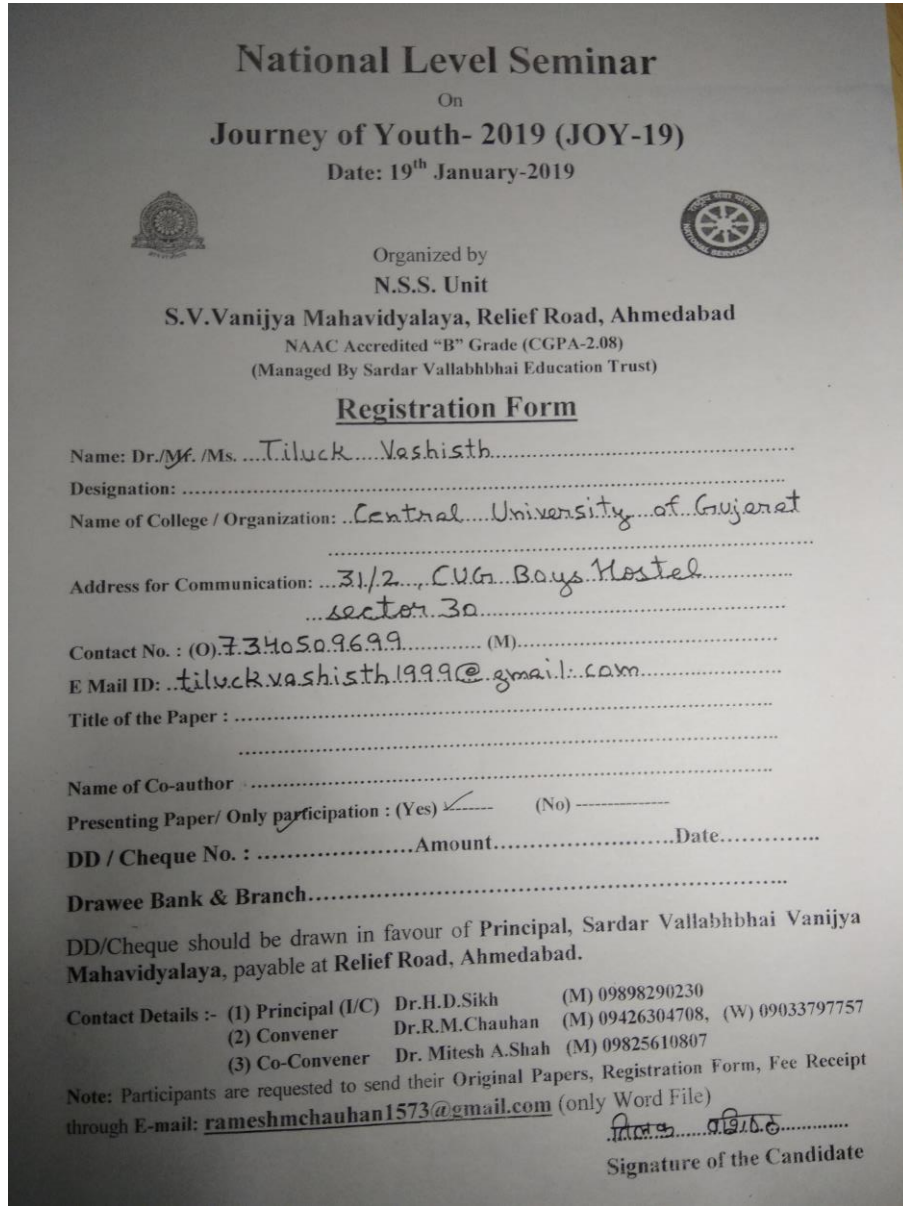 National Level Seminar
On
Journey of Youth- 2019 (JOY-19)
Date: 19th January-2019
राष्ट्रीय सेवा योजना
NATIONAL SERVICE SCHEME
Organized by
N.S.S. Unit
S.V.Vanijya Mahavidyalaya, Relief Road, Ahmedabad
NAAC Accredited “B” Grade (CGPA-2.08)
(Managed By Sardar Vallabhbhai Education Trust)
Registration Form
Name: Dr./Mr. /Ms. ....Tiluck....Vashisth..............................................
Designation: ..............................................................................
Name of College / Organization: ..Central....University...of..Gujarat
..............................................................................
Address for Communication: ...31/2...,.CUG..Boys.Hostel...............
...sector.30..................................................
Contact No. : (O).7340509699............. (M)...........................................
E Mail ID: ..tiluckvashisth1999@gmail.com.......................
Title of the Paper : ..............................................................................
..............................................................................
Name of Co-author ..............................................................................
Presenting Paper/ Only participation : (Yes) ✓------- (No) ---------------
DD / Cheque No. : .....................Amount.........................Date..............
Drawee Bank & Branch.................................................................
DD/Cheque should be drawn in favour of Principal, Sardar Vallabhbhai Vanijya
Mahavidyalaya, payable at Relief Road, Ahmedabad.
Contact Details :- (1) Principal (I/C) Dr.H.D.Sikh (M) 09898290230
(2) Convener Dr.R.M.Chauhan (M) 09426304708, (W) 09033797757
(3) Co-Convener Dr. Mitesh A.Shah (M) 09825610807
Note: Participants are requested to send their Original Papers, Registration Form, Fee Receipt
through E-mail: rameshmchauhan1573@gmail.com (only Word File)
तिलक......वशिष्ठ.............
Signature of the Candidate